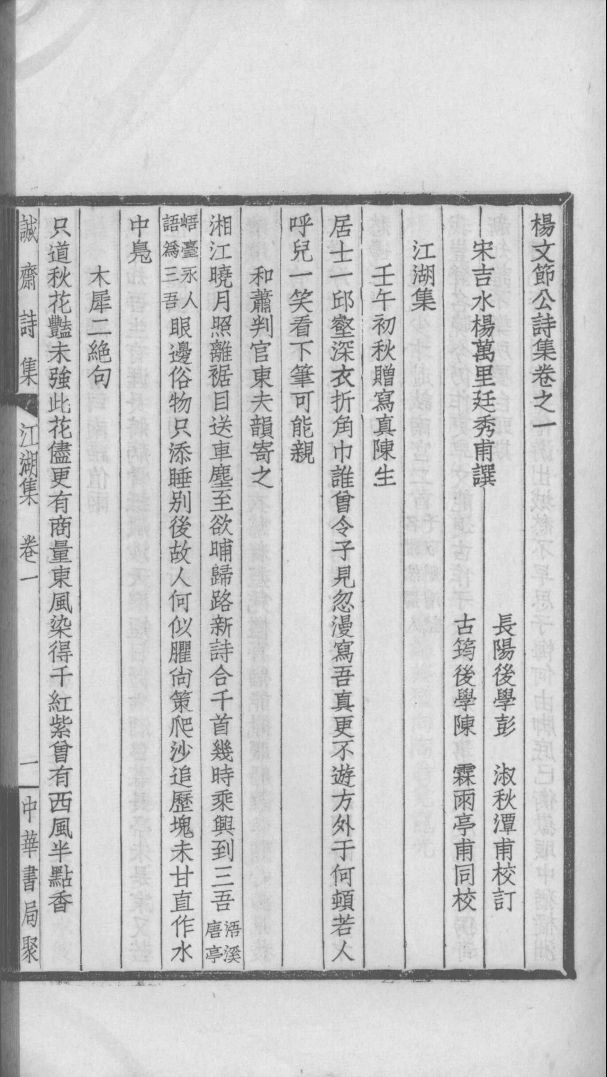 楊文節公詩集卷之一
長陽後學彭　淑秋潭甫校訂
宋吉水楊萬里廷秀甫譔
古筠後學陳　霖雨亭甫同校
江湖集
壬午初秋贈寫真陳生
居士一邱壑深衣折角巾誰曾令子見忽漫寫吾真更不遊方外于何頓若人
呼兒一笑看下筆可能親
和蕭判官東夫韻寄之
湘江曉月照離裾目送車塵至欲晡歸路新詩合千首幾時乘興到三吾浯溪
㾗亭
峿臺永人
語爲三吾眼邊俗物只添睡别後故人何似臞尙策爬沙追歷塊未甘直作水
中鳧
木犀二絶句
只道秋花豔未強此花儘更有商量東風染得千紅紫曾有西風半點香
誠齋詩集　江湖集　卷一　一　中華書局聚